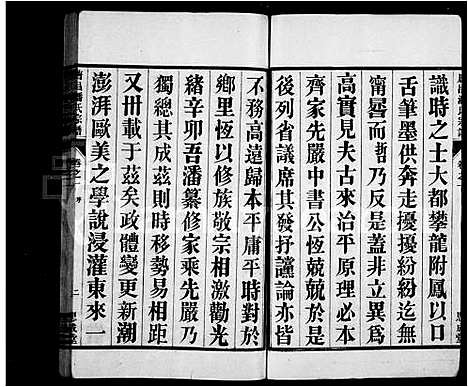 識時之士大都攀龍附鳳以口
舌筆墨供奔走擾擾紛紛求
甯謐而哲乃反是蓋非立異爲
高實見夫古來治平原理必本
齊家先嚴中書公恆兢兢於此
後列省議席其發抒讜論亦皆
不務高遠歸本平庸平時對於
鄉里恆以修族敬宗相激勸光
緒辛卯吾潘纂修家乘先嚴乃
獨總其成茲則時移勢易相距
又卅載于茲矣政體變更新潮
澎湃歐美之學說浸灌東來一